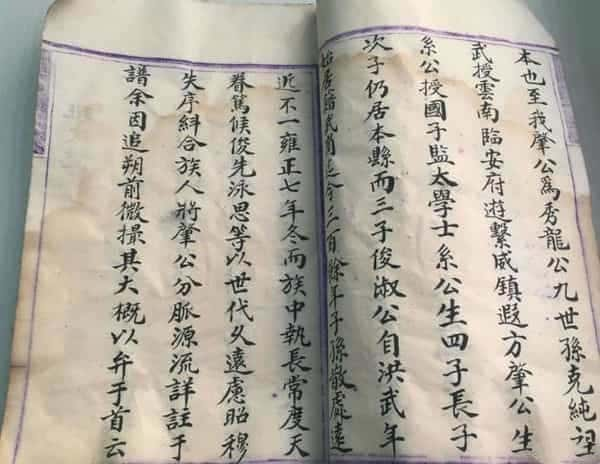 本也至我肇公爲秀龍公九世孫克純望
武授雲南臨安府遊繫威鎮遐方肇公生
系公授國子監太學士系公生四子長子
次子仍居本縣而三子俊淑公自洪武年
始居武岡迄今三百餘年子孫散處遠
近不一雍正七年冬而族中執長常度天
眷篤候俊先泳思等以世代乆遠慮昭穆
失序糾合族人將肇公分脈源流詳註于
譜余因追朔前微撮其大概以弁于首云